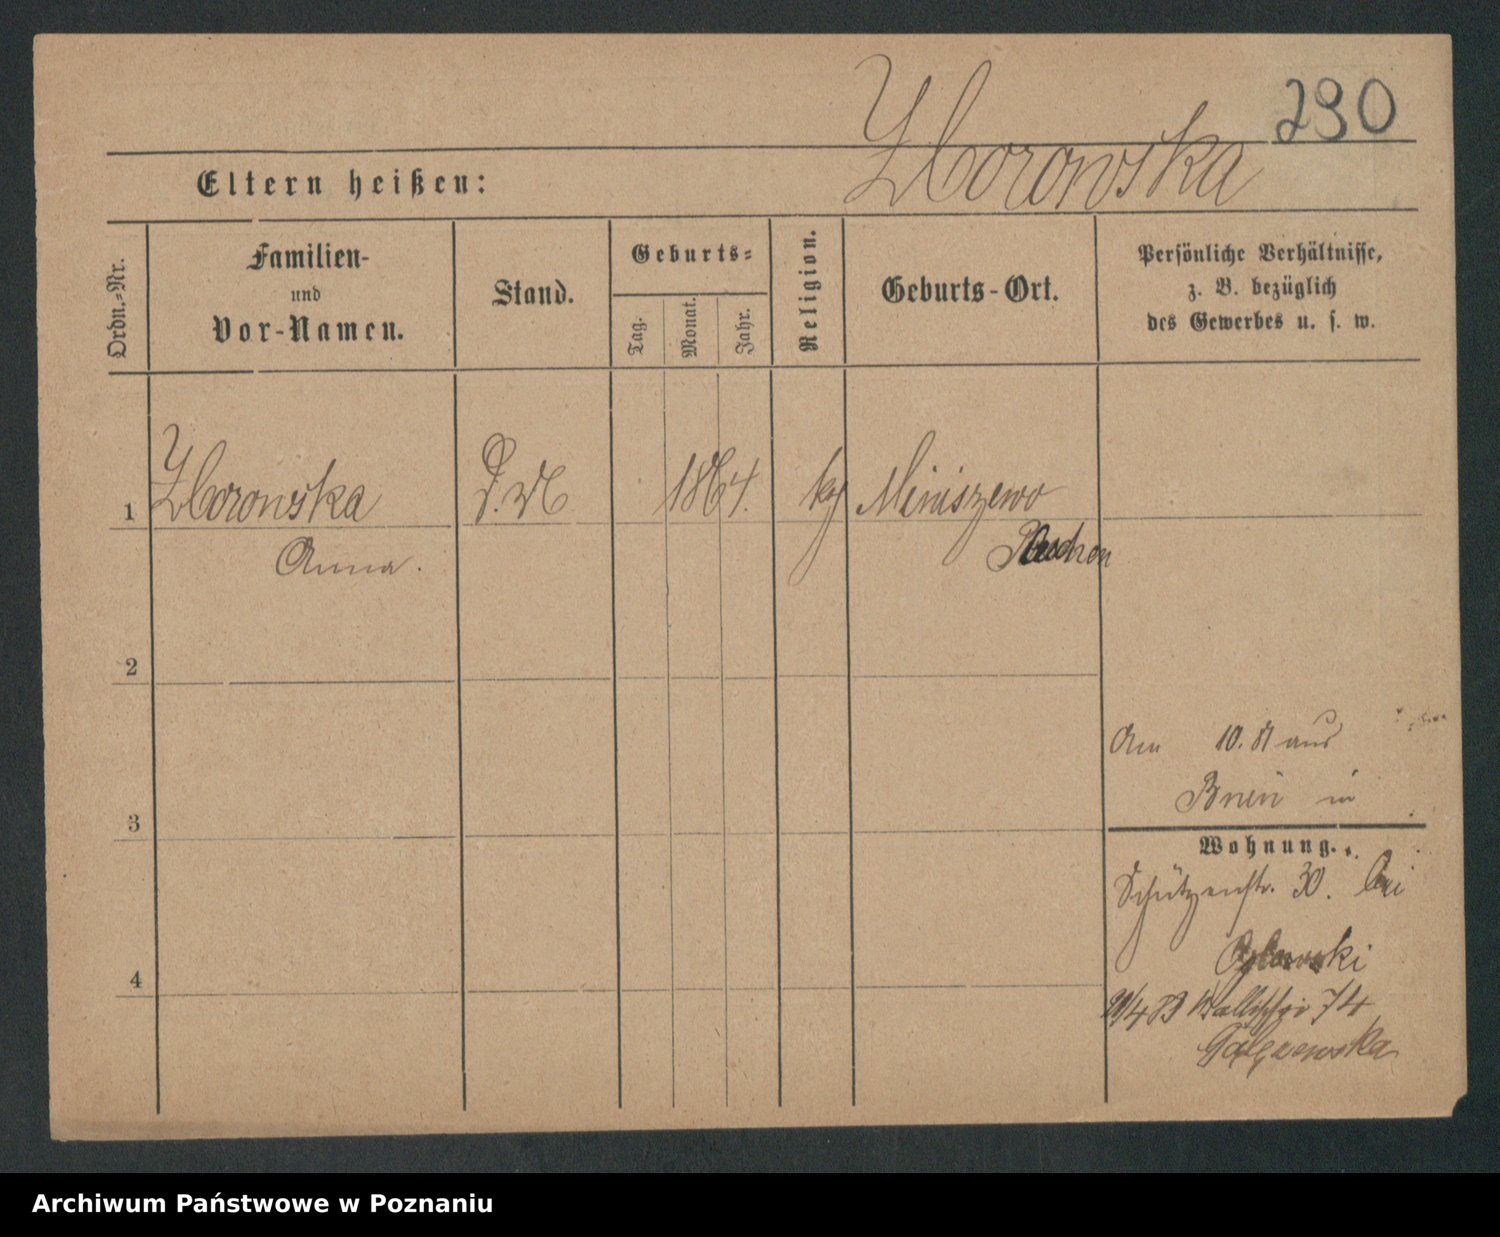 290
Zborowska
Eltern heißen:
Ordn.-Nr.
Familien-
und
Vor-Namen.
Stand.
Geburts-
Tag.
Monat.
Jahr.
Religion.
Geburts-Ort.
Persönliche Verhältnisse,
z. B. bezüglich
des Gewerbes u. s. w.
1 Zborowska D. M. 1864. k Miniszewo
Anna.
2
3
4
Am 10. 81 aus
Bnin in
Wohnung.
Schützenstr. 30. bei
4 83 Wallischei 74
Archiwum Państwowe w Poznaniu